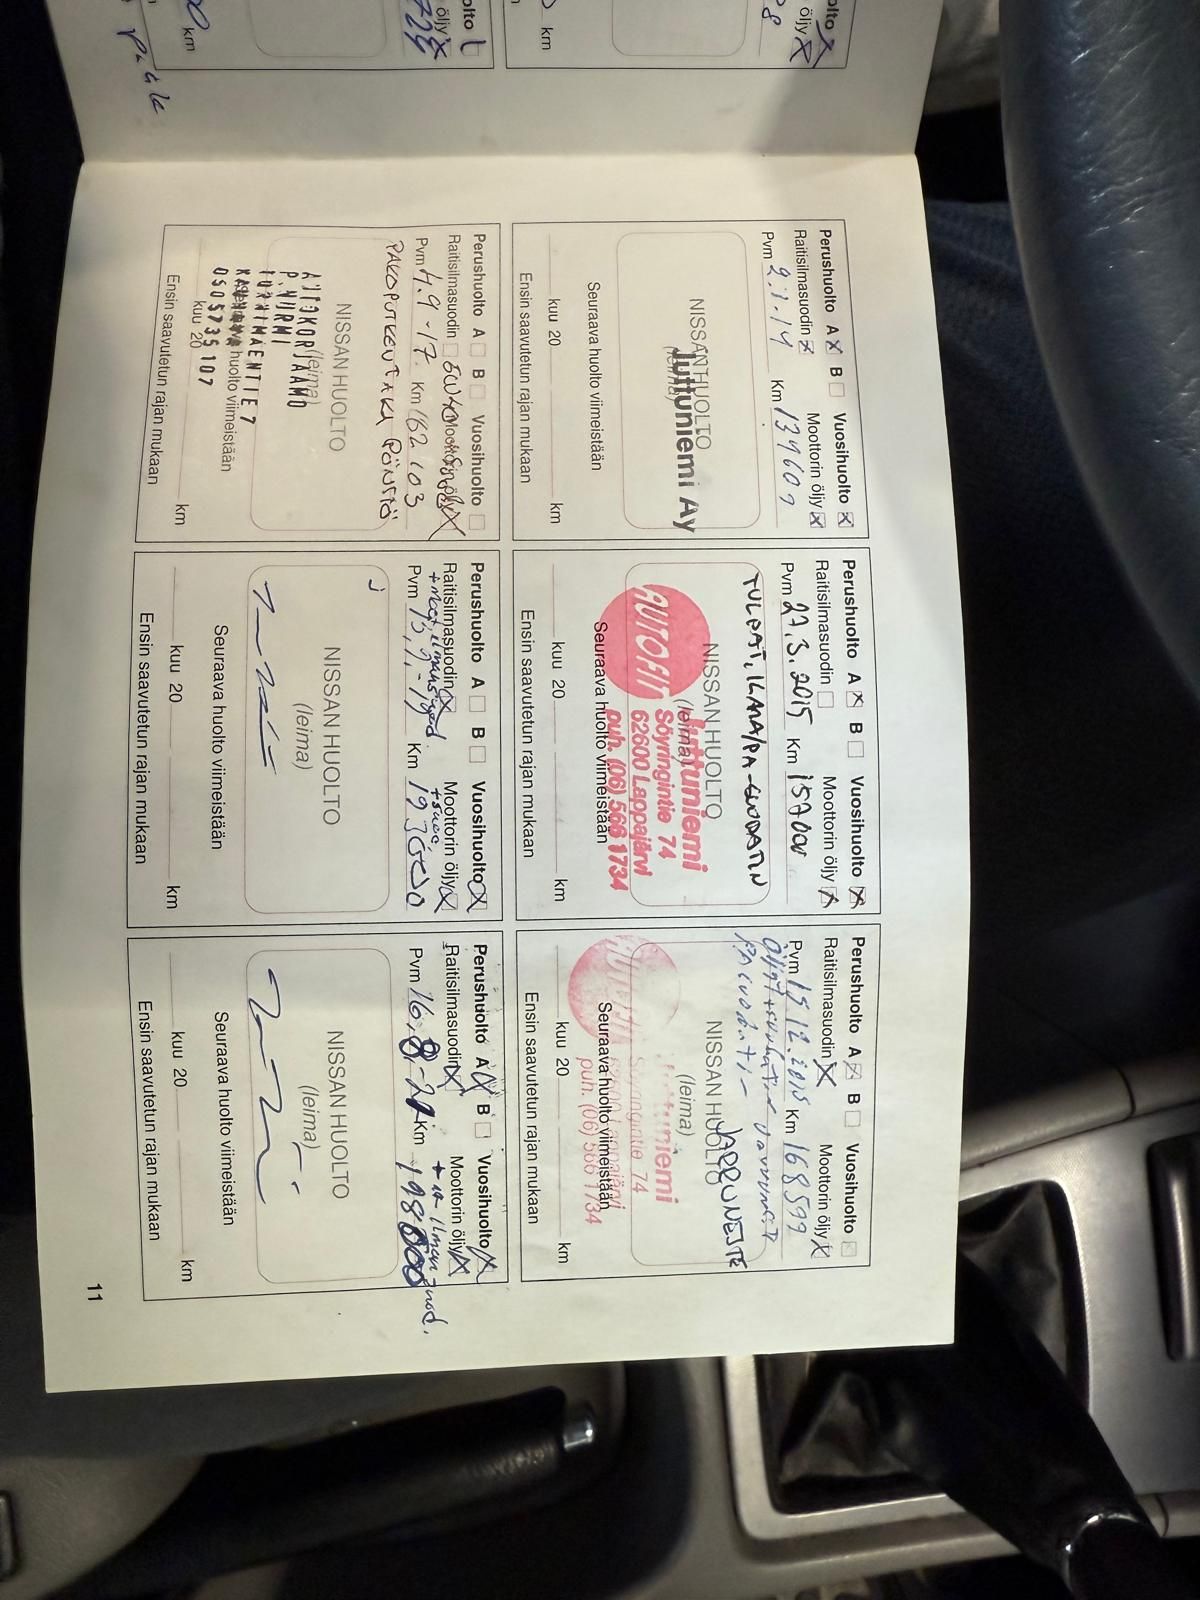 Perushuolto A X B Vuosihuolto X
Raitisilmasuodin X Moottorin öljy X
Pvm 2.1.14 Km 139609
NISSAN HUOLTO
(leima)
Juttuniemi Ay
Seuraava huolto viimeistään
kuu 20 km
Ensin saavutetun rajan mukaan
Perushuolto A X B Vuosihuolto X
Raitisilmasuodin Moottorin öljy X
Pvm 27.3.2015 Km 157000
TULPAT, ILMA/PA-SUODATIN
NISSAN HUOLTO
(leima)
AUTOFIT
Juttuniemi
Söyringintie 74
62600 Lappajärvi
puh. (06) 566 1734
Seuraava huolto viimeistään
kuu 20 km
Ensin saavutetun rajan mukaan
Perushuolto A X B Vuosihuolto
Raitisilmasuodin X Moottorin öljy X
Pvm 15.12.2015 Km 168599
JARRUNESTE
NISSAN HUOLTO
(leima)
Juttuniemi
Söyringintie 74
62600 Lappajärvi
puh. (06) 566 1734
Seuraava huolto viimeistään
kuu 20 km
Ensin saavutetun rajan mukaan
Perushuolto A B Vuosihuolto
Raitisilmasuodin Moottorin öljy X
Pvm 4.9-17. Km 162103
PAKOPUTKEN TAKA PÖNTTÖ
NISSAN HUOLTO
(leima)
AUTOKORJAAMO
P.NURMI
TORNIMÄENTIE 7
Seuraava huolto viimeistään
0505735107
kuu 20 km
Ensin saavutetun rajan mukaan
Perushuolto A B Vuosihuolto X
Raitisilmasuodin X Moottorin öljy X
+ suod.
Km 193000
NISSAN HUOLTO
(leima)
Seuraava huolto viimeistään
kuu 20 km
Ensin saavutetun rajan mukaan
Perushuolto A X B Vuosihuolto X
Raitisilmasuodin X Moottorin öljy X
+ ilman suod.
Pvm 16.8-21 Km 198000
NISSAN HUOLTO
(leima)
Seuraava huolto viimeistään
kuu 20 km
Ensin saavutetun rajan mukaan
11